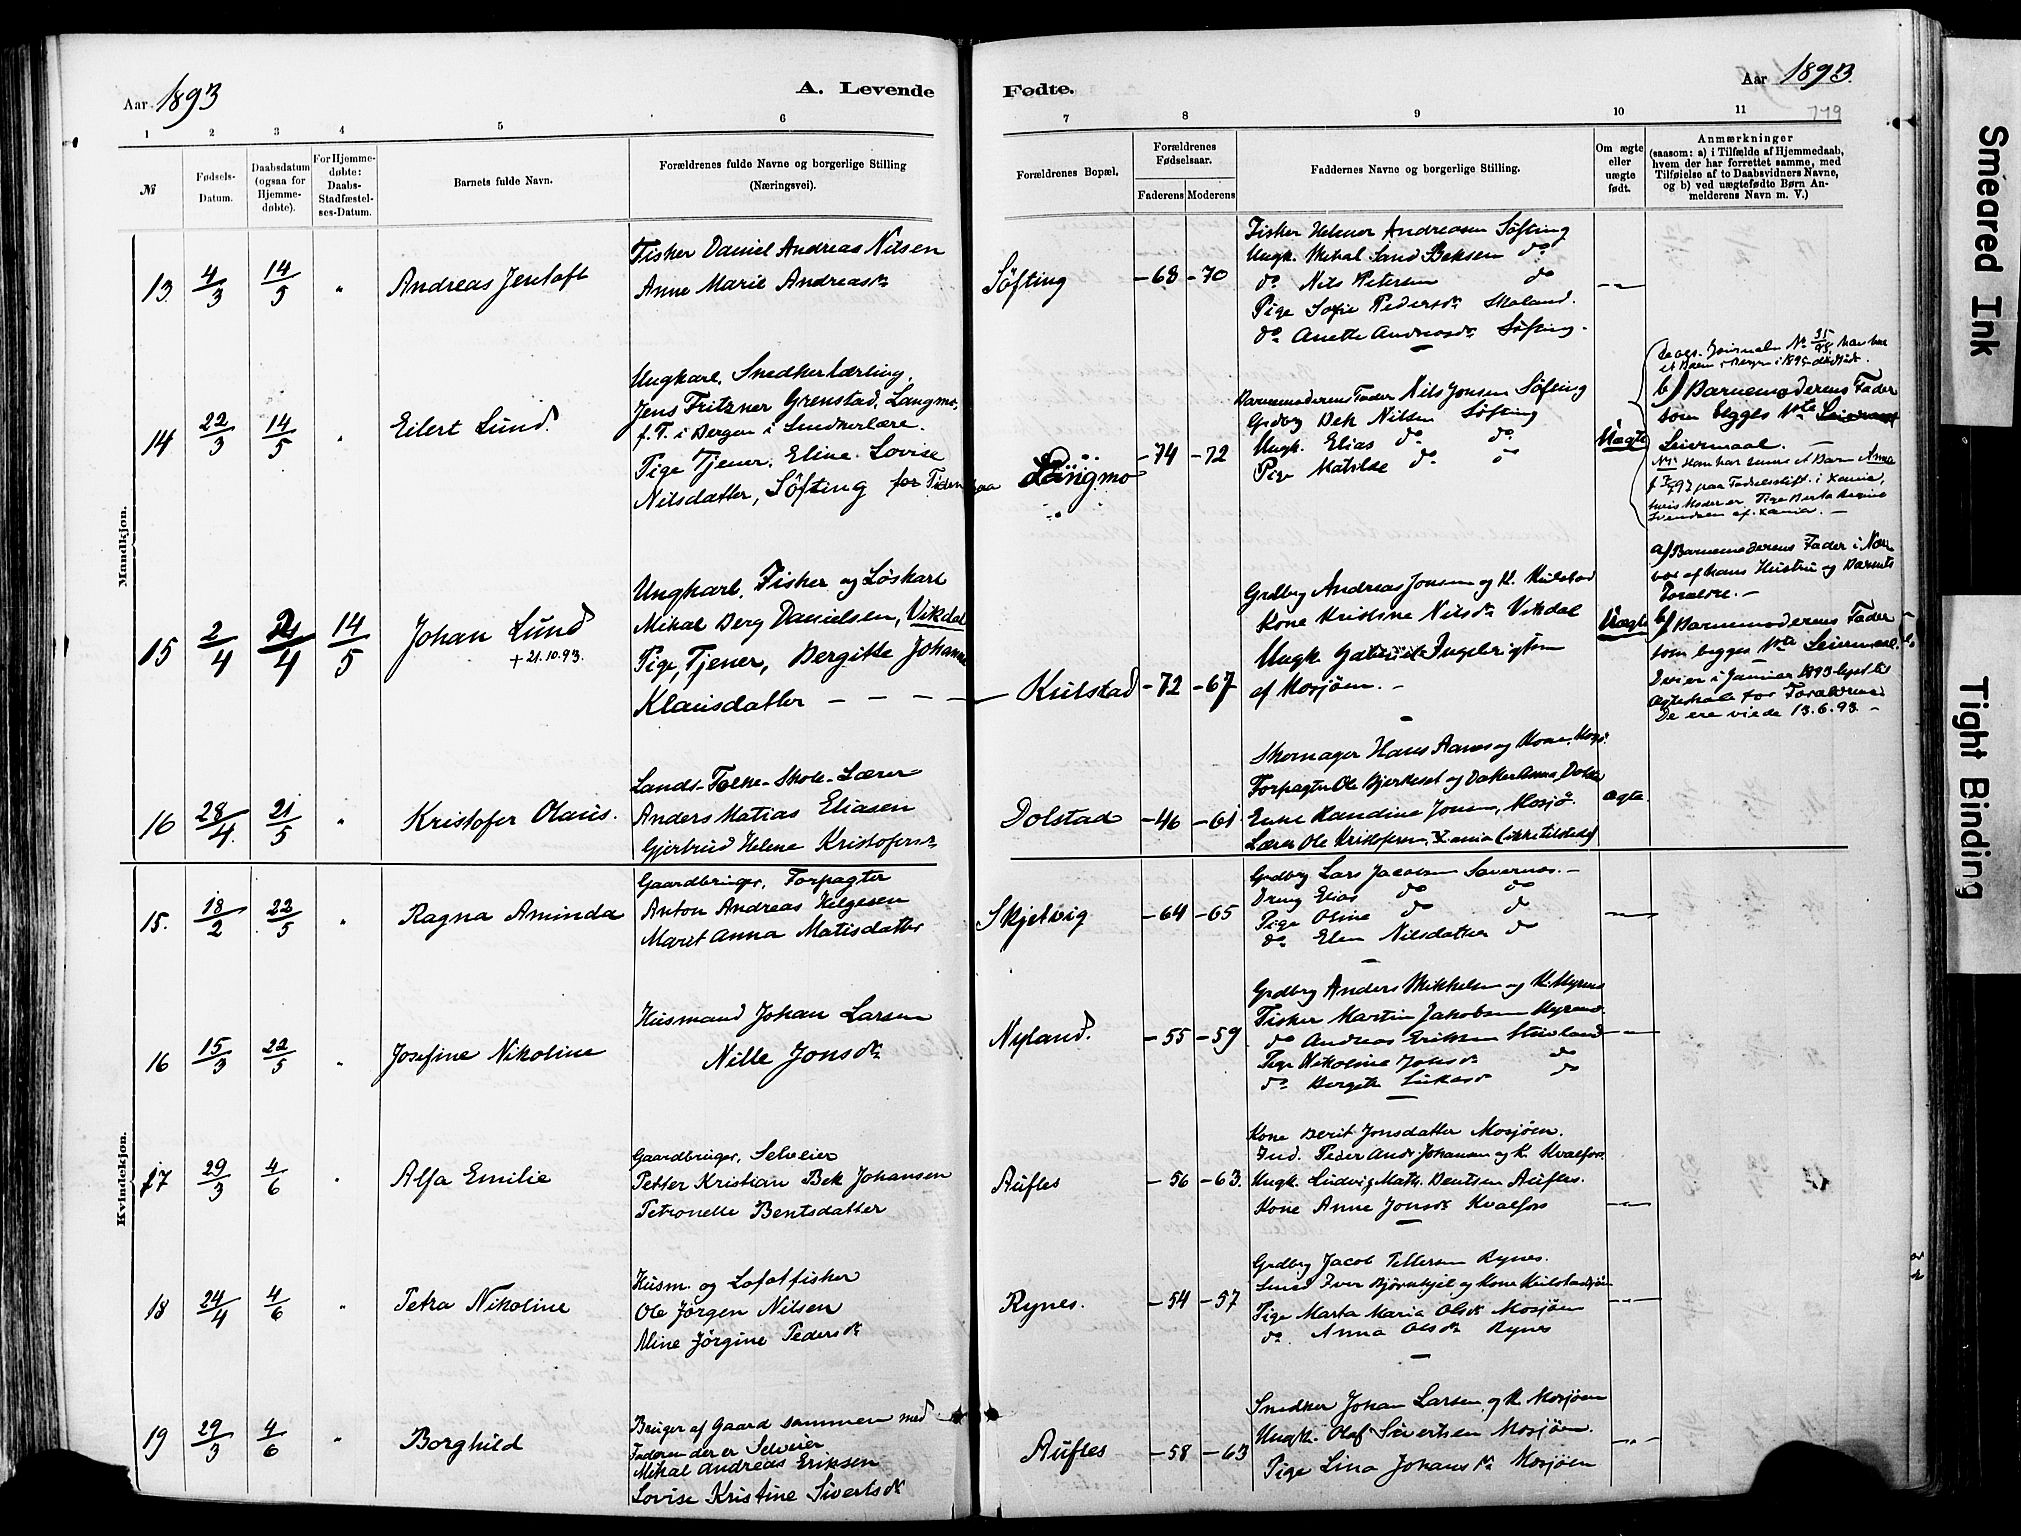 Aar 1893
A. Levende
1 2 3 4 5 6
№
Fødsels-Datum.
Daabsdatum (ogsaa for Hjemme-døbte).
For Hjemme-døbte: Daabs-Stadfæstel-ses-Datum.
Barnets fulde Navn.
Forældrenes fulde Navne og borgerlige Stilling
(Næringsvei).
Mandkjøn.
13 4/3 14/5 " Andreas Jentoft
Fisker Daniel Andreas Nilsen
Anne Marie Andreasdr
14 22/3 14/5 " Eilert Lund
Ungkarl, Snedkerlærling,
Jens Fritzner Grenstad, Langmo,
f. T. i Bergen i Snedkerlære.
Pige Tjener, Eline Lovise
Nilsdatter, Söfting for Tiden paa
15 2/4 2/4 14/5 Johan Lund
+ 21.10.93.
Ungkarl, Fisker og Löskarl
Mikal Berg Danielsen, Vikdal
Pige, Tjener, Bergitte Johanna
Klausdatter - - - -
16 28/4 21/5 " Kristofer Olaus.
Lands-Folke-Skole-Lærer
Anders Matias Eliasen
Gjertrud Helene Kristofersdr
Kvindekjøn.
15. 18/2 22/5 " Ragna Aminda
Gaardbruger, Forpagter
Anton Andreas Helgesen
Marit Anna Matisdatter
16 15/3 22/5 " Josefine Nikoline
Husmand Johan Larsen
Nille Jonsdr
17 29/3 4/6 " Alfa Emilie
Gaardbruger, Selveier
Petter Kristian Bek Johansen
Petronelle Bentsdatter
18 24/4 4/6 " Petra Nikoline
Husm. og Lofotfisker
Ole Jørgen Nilsen
Aline Jørgine Pedersdr
19 29/3 4/6 " Borghild
Bruger af Gaard sammen med
Faderen der er Selveier
Mikal Andreas Eriksen
Lovise Kristine Sivertsdr
Fødte.
Aar 1893.
779
7 8 9 10 11
Forældrenes Bopæl.
Forældrenes Fødselsaar.
Faderens Moderens
Faddernes Navne og borgerlige Stilling.
Om ægte eller uægte født.
Anmærkninger
(saasom: a) i Tilfælde af Hjemmedaab, hvem der har forrettet samme, med Tilføielse af to Daabsvidners Navne, og b) ved uægtefødte Børn Anmelderens Navn m. V.)
Söfting -68 -70
Fisker Helmer Andreasen Söfting
Ungk. Mikal Sand Beksen do
do Nils Petersen do
Pige Sofie Pedersdr Skoland.
do Anette Andreasdr Söfting.
Langmo -74 -72
Barnemoderens Fader Nils Jonsen Söfting
Grdbrg Bek Nilsen Söfting
Ungk. Elias do do
Pige Matilde do
Uægte
b) Barnemoderens Fader
som begges 1ste
Leiermaal.
Kulstad -72 -67
Grdbrg Andreas Jonsen og K. Kulstad
Kone Kristine Nilsdr Vikdal
Ungk. Gabriel Ingebrigtsen
af Mosjøen. -
Uægte
a) Barnemoderens Fader i Nær-
vær af hans Hustru og Barnets
Forældre. -
b) Barnemoderens Fader
som begges 1ste Leiermaal.
De ere viede 13.6.93 -
Dolstad -46 -61
Skomager Hans Aanes og Kone, Mosj.
Enke Randine Jonsen, Mosjø.
Lærer Ole Kristofersen, Xania (ikke tilstede)
ægte
Skjetvig -64 -65
Grdbrg Lars Jacobsen
Dreng Elias do do
Pige Oline do do
do Elen Nilsdatter do
Nyland. -55 -59
Grdbrg Anders Mikkelsen og K.
Fisker Martin Jakobsen
do Andreas Eriksen
Pige Nikoline Jonsdr do
do Bergite Lukasdr do
Aufles -56 -63.
Kone Berit Jonsdatter Mosjøen.
Ind. Peder Andr Johansen og K. Kvalfors
Ungk. Ludvig Math. Bentsen Aufles.
Kone Anne Jonsdr Kvalfors
Rynes. -54 -57
Grdbrg Jacob Tellersen Rynes.
Smed Iver Bjørnhjel og Kone Kulstadsjøen
Pige Marta Maria Olsdr Mosjøen
do Anna Olsdr Rynes
Aufles -58 -63
Snedker Johan Larsen og K. Mosjøen
Ungk. Olaf Sivertsen Mosjøen.
Pige Lina Johansdr Mosjøen
Smeared Ink
Tight Binding